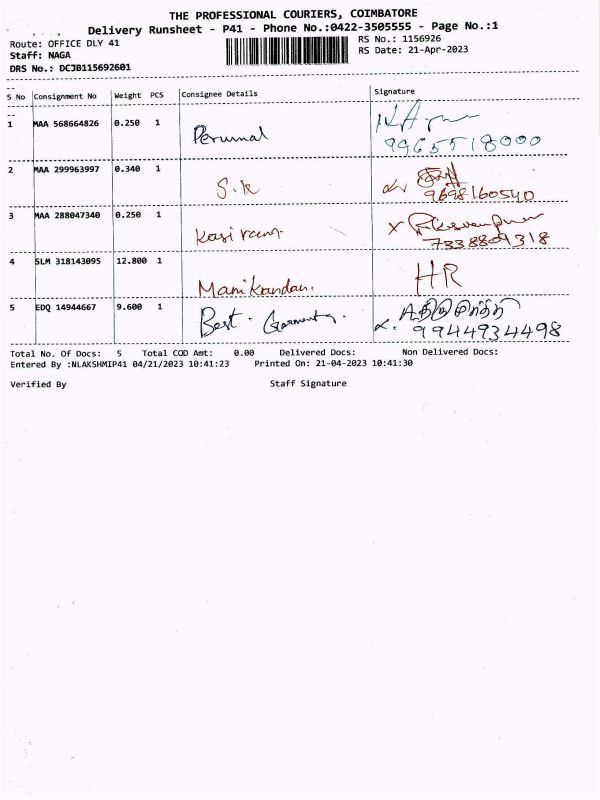 THE PROFESSIONAL COURIERS, COIMBATORE
Delivery Runsheet - P41 - Phone No.:0422-3505555 - Page No.:1
Route: OFFICE DLY 41
RS No.: 1156926
Staff: NAGA
RS Date: 21-Apr-2023
DRS No.: DCJB115692601
S No Consignment No Weight PCS Consignee Details Signature
1 MAA 568664826 0.250 1 Perumal
9965518000
2 MAA 299963997 0.340 1 S.K
9698160540
3 MAA 288047340 0.250 1 Kasi ram
7338809318
4 SLM 318143095 12.800 1 Manikandan. HR
5 EDQ 14944667 9.600 1 Best. Garments.
9944934498
Total No. Of Docs: 5 Total COD Amt: 0.00 Delivered Docs: Non Delivered Docs:
Entered By :NLAKSHMIP41 04/21/2023 10:41:23 Printed On: 21-04-2023 10:41:30
Verified By Staff Signature